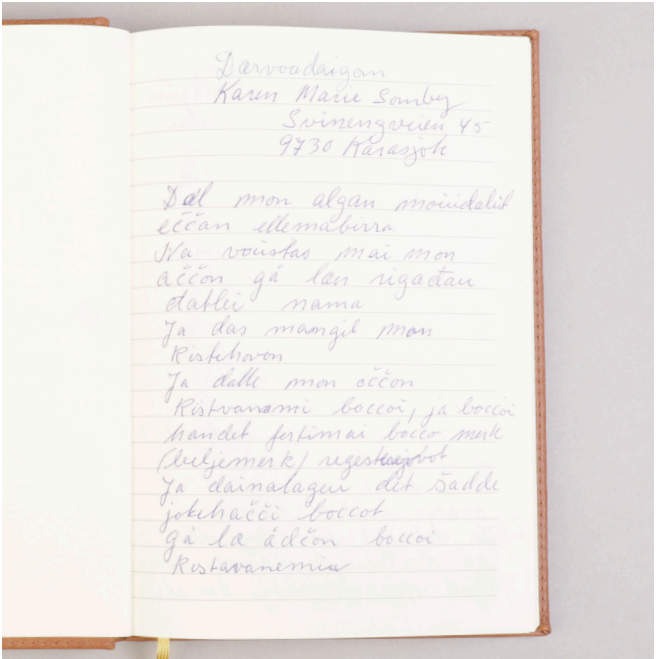 Dærvoadaigom
Karen Marie Somby
Svinengveien 45
9730 Karasjok
Dál mon algan moiuidalit
eččan ellemabirra
Na vuustas mai mon
aččon gå læn rigadau
dablei nama
Ja das mangil mon
Ristehovon
Ja dalle mon oččon
Ristvanami boccoi, ja boccoi
handet fertimai bocco merk
(beljemerk)
Ja dainalagen det šadde
jokehačči boccot
gå læ ådčon boccoi
Ristavanemia